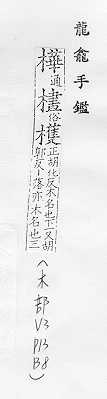 龍龕手鑑
樺通𣛛俗檴正胡化反木名也下又胡郭反卜落亦木名也三
(木部V3 P13 B8)